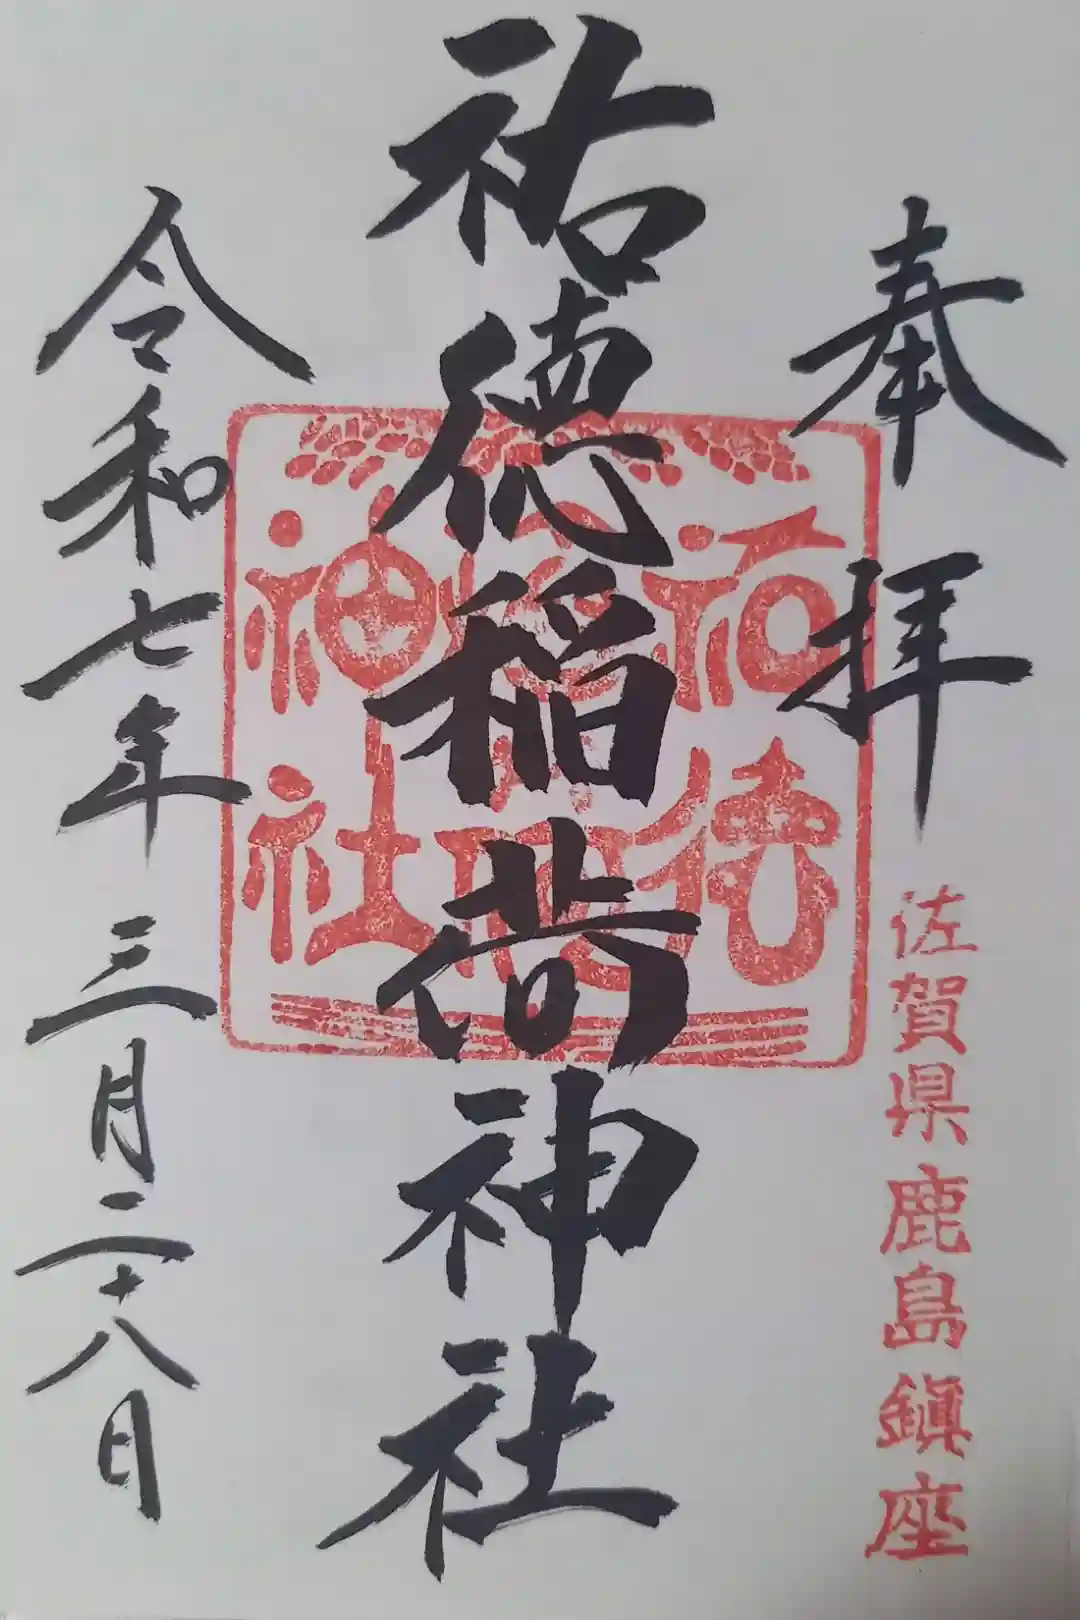 奉拝
佐賀県鹿島鎮座
祐徳稲荷神社
祐徳
稲荷
神社
令和七年三月二十八日